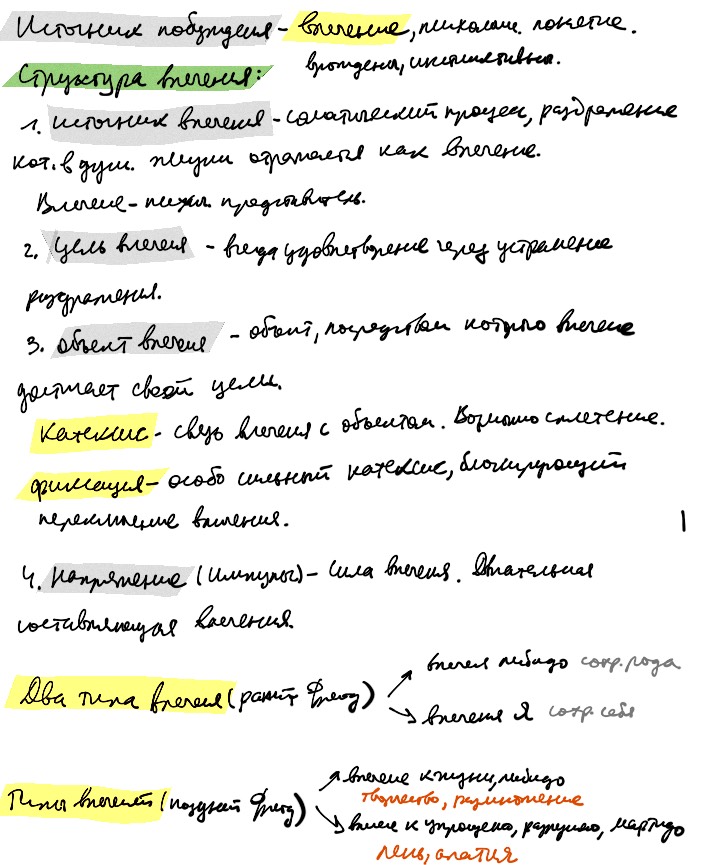 Источник побуждения - влечение, психологич. понятие.
врождены, инстинктивны.
Структура влечения:
1. Источник влечения - соматический процесс, раздражение
кот. в душ. жизни отражается как влечение.
Влечение - психич. представитель.
2. Цель влечения - всегда удовлетворение через устранение
раздражения.
3. Объект влечения - объект, посредством которого влечение
достигает своей цели.
Катексис - связь влечения с объектом. Возможно сплетение.
Фиксация - особо сильный катексис, блокирующий
переключение влечения.
4. Напряжение (импульс) - сила влечения. Двигательная
составляющая влечения.
Два типа влечения (ранний Фрейд)
влечения либидо сохр. рода
влечения Я сохр. себя
Типы влечений (поздний Фрейд)
влечение к жизни, либидо
творчество, размножение
влечение к упрощению, разрушению, мортидо
лень, апатия